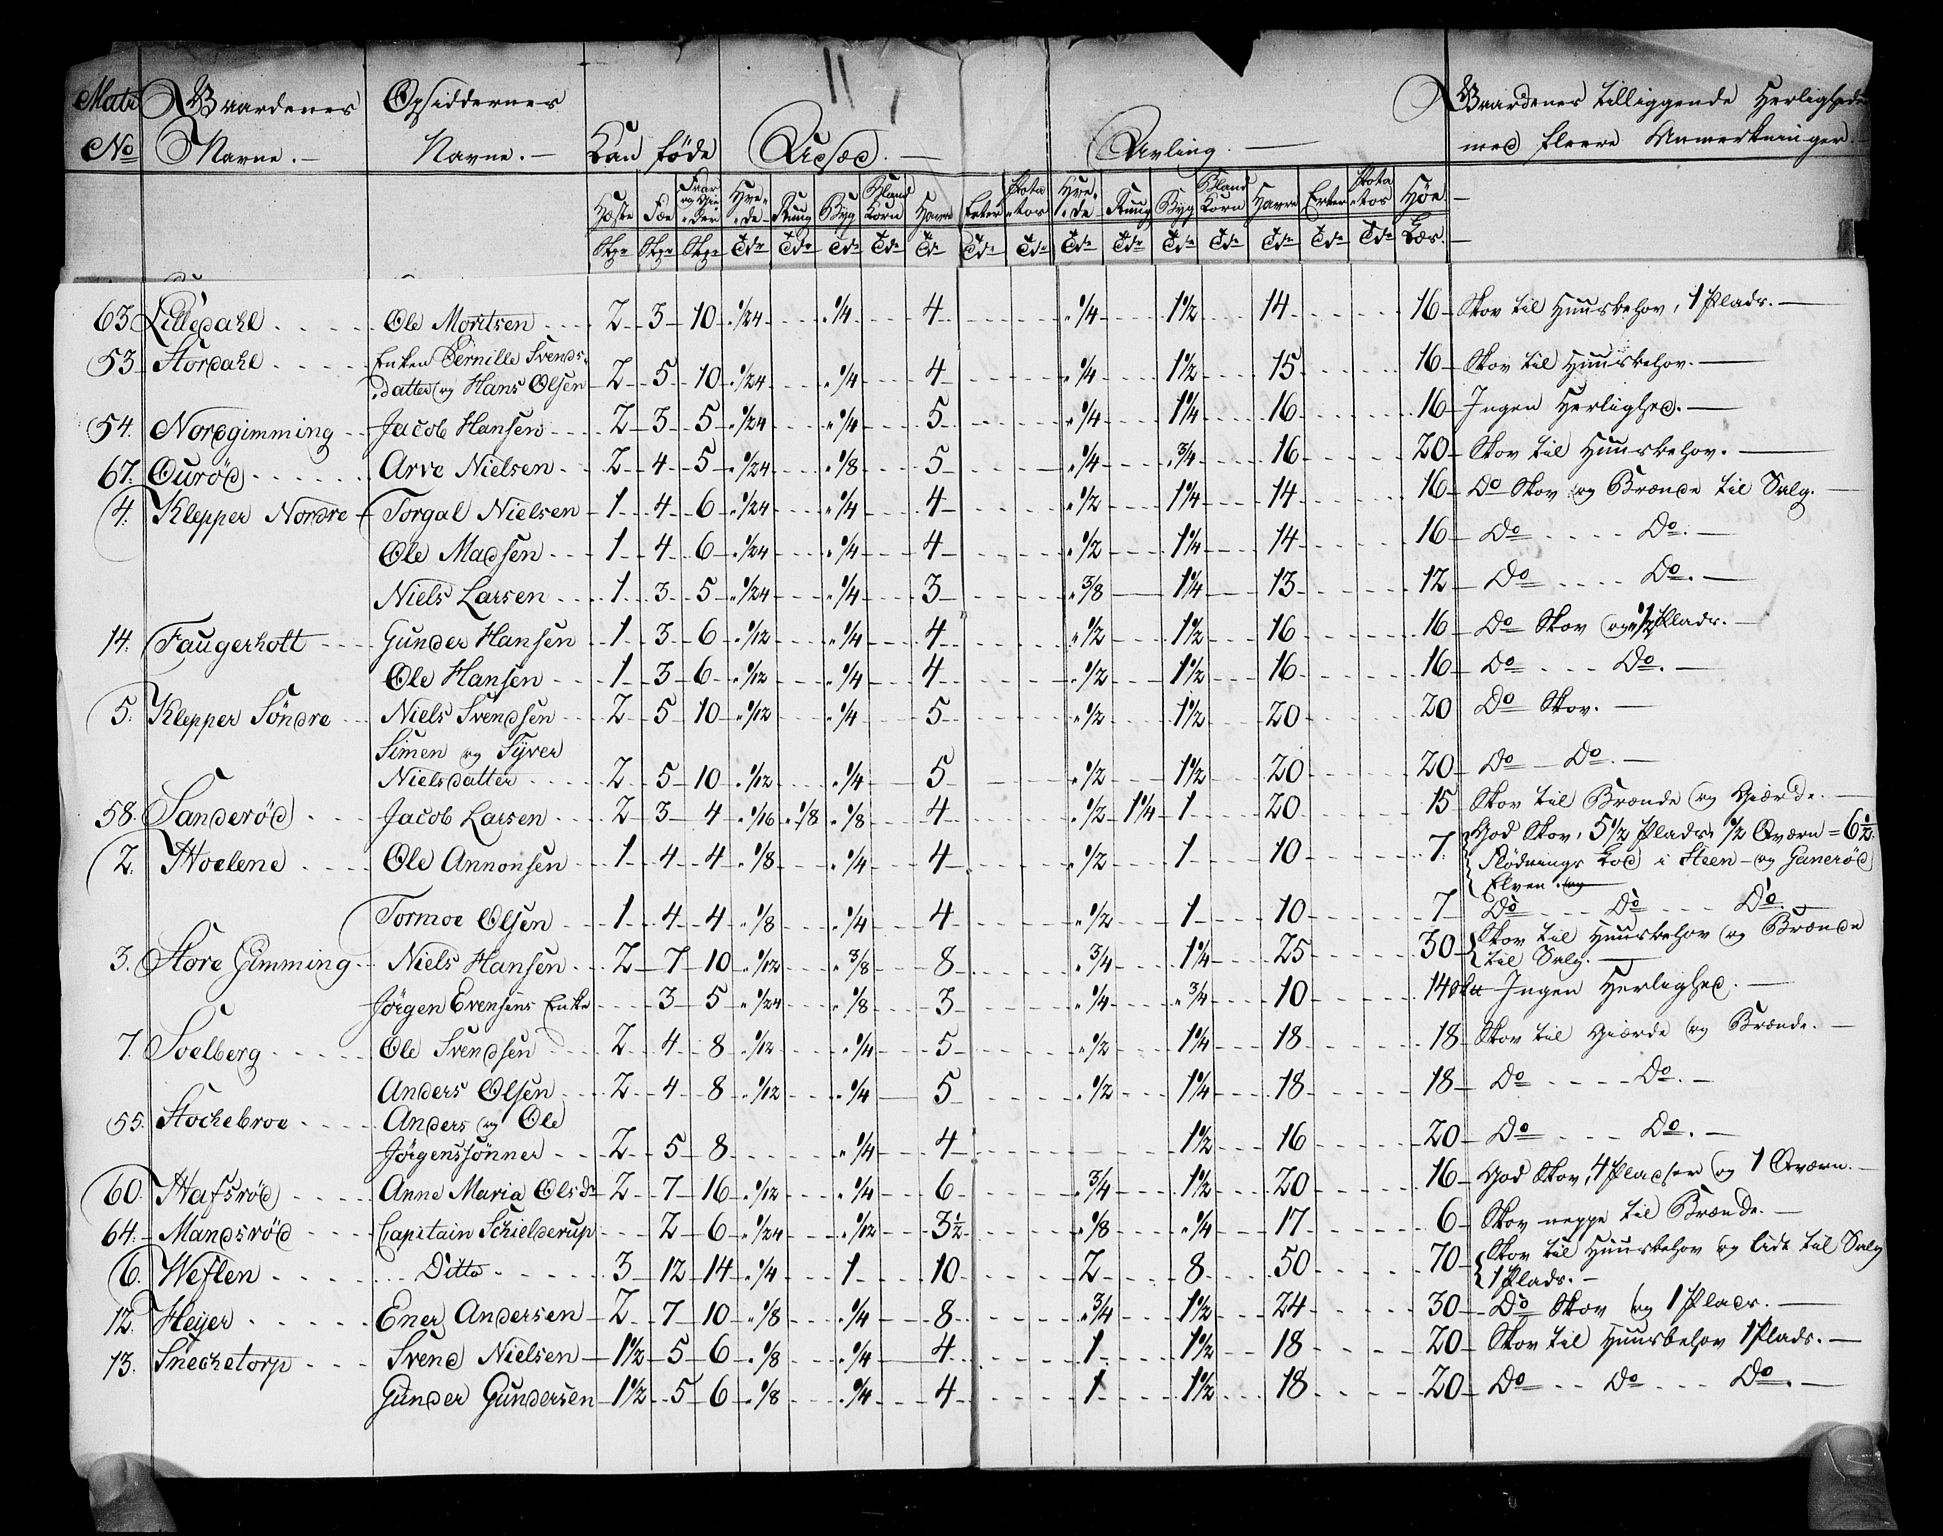 11
Matr No Gaardenes Navne. — Opsiddernes Navne. — Kan føde Udsæd. — Avling. — Gaardenes tilliggende Herligheder med fleere Anmerkninger. —
Hæste Fæe Faar og Gie-der Hve-de Rung Byg Bland Korn Havre Erter Potatos Hvede Rung Byg Bland Korn Havre Erter Potatos Høe
Tdr Tdr Tdr Tdr Td Tdr Tdr Tdr Tdr Tdr Tdr Tdr Tdr Tdr Læs.
63 Lilledahl Ole Moritsen 2 3 10 1/24 1/4 4 1/4 1 1/2 14 16 Skov til Huusbehov, 1 Plads.
53 Stordahl Enken Pernille Svends-
datter og Hans Olsen 2 5 10 1/24 1/4 4 1/4 1 1/2 15 16 Skov til Huusbehov.
54. Nordgimming Jacob Hansen 2 3 5 1/24 1/4 5 1/4 1 1/4 16 16 Ingen Herlighed.
67. Ourød Arve Nielsen 2 4 5 1/24 1/8 5 1/4 3/4 16 20 Skov til Huusbehov.
4. Klepper Nordre Torgal Nielsen 1 4 6 1/24 1/4 4 1/2 1 1/4 14 16 Do Skov og Brænde til Salg.
Ole Madsen 1 4 6 1/24 1/4 4 1/2 1 1/4 14 16 Do Do.
Niels Larsen 1 3 5 1/24 1/4 3 3/8 1 1/4 13 12 Do Do.
14. Faugerholt Gunder Hansen 1 3 6 1/12 1/4 4 1/2 1 1/2 16 16 Do Skov og 1/2 Plads.
Ole Hansen 1 3 6 1/12 1/4 4 1/2 1 1/2 16 16 Do Do.
5. Klepper Söndre Niels Svendsen 2 5 10 1/12 1/4 5 1/2 1 1/2 20 20 Do Skov.
Simen og Syver
Nielsdatter 2 5 10 1/12 1/4 5 1/2 1 1/2 20 20 Do Do.
58. Sanderöd Jacob Larsen 2 3 4 1/16 1/8 1/8 4 1/2 1 1/4 1 20 15 Skov til Brænde og Giærde.
2. Hoelene Ole Annonsen 1 4 4 1/8 1/4 4 1/2 1 10 7. God Skov, 5 1/2 Plads, 1/2 Qværn = 6 1/2.
Flødnings Lod i Steen- og Ganerød
Elven
Tormoe Olsen 1 4 4 1/8 1/4 4 1/2 1 10 7 Do Do Do.
3. Store Gimming Niels Hansen 2 7 10 1/12 3/8 8 3/4 1 1/4 25 30 Skov til Huusbehov og Brænde
til Salg.
Jörgen Evensens Enke 3 5 1/24 1/8 3 1/4 3/4 10 14 Ingen Herlighed.
7. Soelberg Ole Svendsen 2 4 8 1/12 1/4 5 1/2 1 1/4 18 18 Skov til Giærde og Brænde.
Anders Olsen 2 4 8 1/12 1/4 5 1/2 1 1/4 18 18 Do Do.
55. Stockebroe Anders og Ole
Jörgenssønner 2 5 8 1/4 4 1 1/2 16 20 Do Do.
60. Hafsröd Anne Maria Olsdr 2 7 16 1/12 1/4 6 3/4 1 1/2 20 16 God Skov, 4 Pladser og 1 Qværn.
64. Mandsröd Capitain Schielderup 2 6 1/24 1/12 3 1/2 1/8 1/4 17 6 Skov neppe til Brænde.
6. Weflen Ditto 3 12 14 1/4 1 10 2 8 50 70 Skov til Huusbehov og lidt til Salg
1 Plads.
12. Heyer Ener Andersen 2 7 10 1/8 1/4 8 3/4 1 1/2 24 30 Do Skov og 1 Plads.
13. Sneckestorp Svend Nielsen 1 1/2 5 6 1/8 1/4 4 1 1 1/2 18 20 Skov til Huusbehov 1 Plads.
Gunder Gundersen 1 1/2 5 6 1/8 1/4 4 1 1 1/2 18 20 Do Do Do.